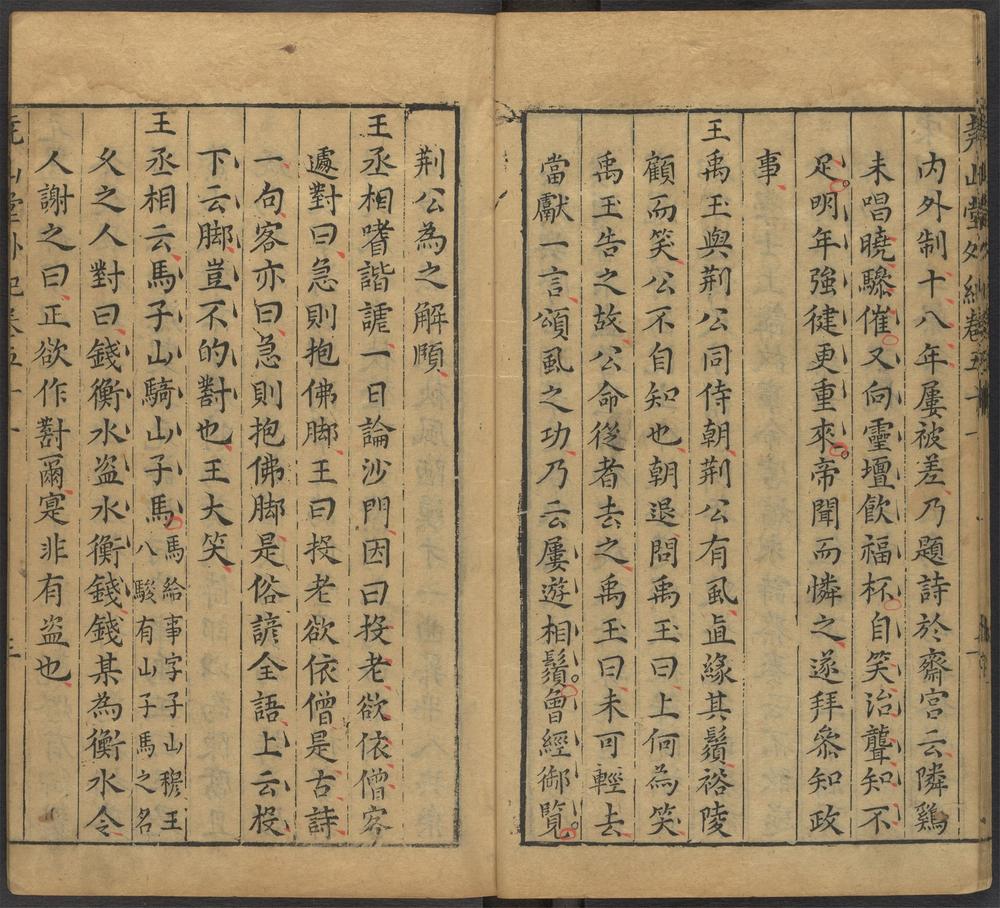 堯山堂外紀卷五十一
內外制十八年屢被差乃題詩於齋宮云隣鷄
未唱曉驂催又向靈壇飲福杯自笑治聾知不
足明年強健更重來帝聞而憐之遂拜叅知政
事
王禹玉與荆公同侍朝荆公有風直緣其鬚裕陵
顧而笑公不自知也朝退問禹玉曰上何為笑
禹玉告之故公命從者去之禹玉曰未可輕去
當獻一言頌風之功乃云屢遊相鬚曾經御覽
荆公為之解頤
王丞相嗜諧謔一日論沙門因曰投老欲依僧客
遽對曰急則抱佛脚王曰投老欲依僧是古詩
一句客亦曰急則抱佛脚是俗諺全語上云投
下云脚豈不的對也王大笑
王丞相云馬子山騎山子馬馬給事字子山穆王
八駿有山子馬之名
久之人對曰錢衡水盗水衡錢錢某為衡水令
人謝之曰正欲作對爾寔非有盗也
堯山堂外紀卷五十一